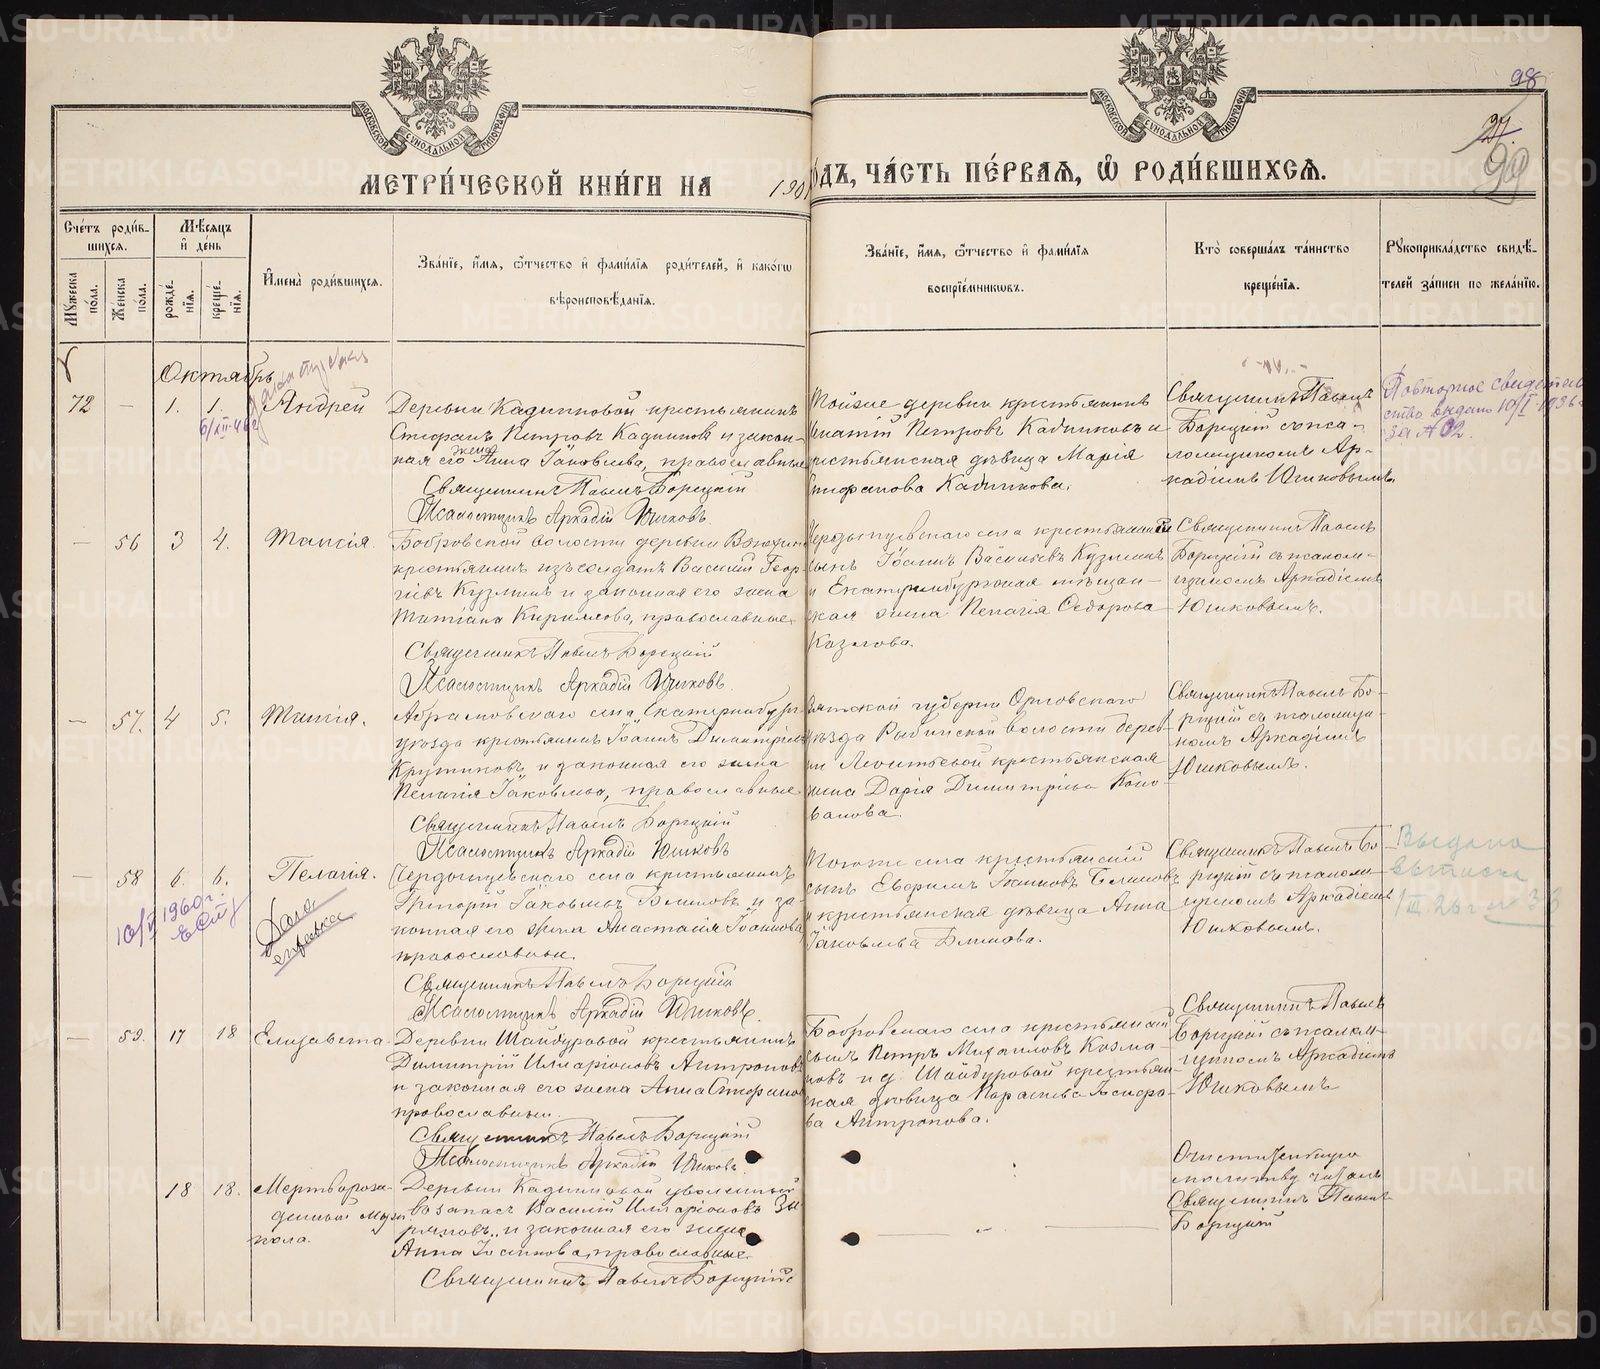 98
27
99
МОСКОВСКОЙ СѴНОДАЛЬНОЙ ТИПОГРАФІИ
МОСКОВСКОЙ СѴНОДАЛЬНОЙ ТИПОГРАФІИ
МЕТРИ́ЧЕСКОЙ КНИ́ГИ НА 190
ОДЪ, ЧА́СТЬ ПЕ́РВАѦ, Ѡ҆ РОДИ́ВШИХСѦ.
Сче́тъ роди́в-
шихсѧ.
Мꙋ́жеска
пола.
Же́нска
пола.
Мѣ́сѧцъ
и҆ де́нь
рожде́-
нїѧ.
креще́-
нїѧ.
И҆мена̀ роди́вшихсѧ.
Зва́нїе, и҆́мѧ, ѻ҆́тчество и҆ фами́лїѧ роди́телей, и҆ како́гѡ
вѣроисповѣ́данїѧ.
Зва́нїе, и҆́мѧ, ѻ҆́тчество и҆ фами́лїѧ
воспрїе́мникѡвъ.
Кто̀ соверша́лъ та́инство
креще́нїѧ.
Рꙋкоприкла́дство свидѣ́-
телей за́писи по жела́нїю.
Октябрь
72 — 1. 1. Андрей
Деревни Кадниковой крестьянинъ
Стефанъ Петровъ Кадниковъ и закон-
ная его жена Анна Іаковлева, православные
Священникъ Павелъ Борецкій
Псаломщикъ Аркадій Юшковъ
Тойже деревни крестьянинъ
Игнатій Петровъ Кадниковъ и
крестьянская дѣвица Марія
Стефанова Кадникова.
Священникъ Павелъ
Борецкій съ пса-
ломщикомъ Ар-
кадіемъ Юшковымъ.
Повторное свидетель
ство выдано 10/I 1936
за № 02.
— 56 3 4. Таисія.
Бобровской волости деревни
крестьянинъ изъ солдатъ Василій Геор-
гіевъ Кузминъ и законная его жена
Татіана Кириллова, православные.
Священникъ Павелъ Борецкій
Псаломщикъ Аркадій Юшковъ.
сынъ Іоаннъ Васильевъ Кузминъ
и Екатеринбургская мѣщан-
ская жена Пелагія Ѳедорова
Козлова.
Священникъ Павелъ
Борецкій съ псалом-
щикомъ Аркадіемъ
Юшковымъ.
— 57. 4 5. Таисія.
Абрамовскаго села Екатеринбург
уѣзда крестьянинъ Іоаннъ Димитріевъ
Крутиковъ и законная его жена
Пелагія Іаковлева, православные
Священникъ Павелъ Борецкій
Псаломщикъ Аркадій Юшковъ
Вятской губерніи Орловскаго
уѣзда Рыбинской волости дерев-
ни Леонтьевой крестьянская
жена Дарія Димитріева Коно-
валова.
Священникъ Павелъ Бо-
рецкій съ псаломщи-
комъ Аркадіемъ
Юшковымъ.
— 58 6. 6. Пелагія.
10/V 1960г
Дана
справка
крестьянинъ
Григорій Іаковлевъ Блиновъ и за-
конная его жена Анастасія Іоаннова
православные.
Священникъ Павелъ Борецкій
Псаломщикъ Аркадій Юшковъ.
Тогоже села крестьянскій
сынъ Евфимъ Іоанновъ Блиновъ
и крестьянская дѣвица Анна
Іаковлева Блинова.
Священникъ Павелъ Бо-
рецкій съ псалом-
щикомъ Аркадіемъ
Юшковымъ.
Выдана
выписка
— 59. 17 18 Елизавета.
Деревни Шайдуровой крестьянинъ
Димитрій Илларіоновъ Антроповъ
и законная его жена Анна Стефанова
православные.
Священникъ Павелъ Борецкій
Псаломщикъ Аркадій Юшковъ.
Бобровскаго села крестьянскій
сынъ Петръ Михаиловъ Козма-
новъ и д. Шайдуровой крестьян-
ская дѣвица Параскева
ва Антропова.
Священникъ Павелъ
Борецкій съ псалом-
щикомъ Аркадіемъ
Юшковымъ
18 18. Мертворож-
денный муж.
пола.
Деревни Кадниковой уволенный
въ запасъ Василій Илларіоновъ Зы-
ряновъ и законная его жена
Анна Іосифова, православные.
Священникъ Павелъ Борецкій
Очистительную
молитву читалъ
Священникъ Павелъ
Борецкій
METRIKI.GASO-URAL.RU